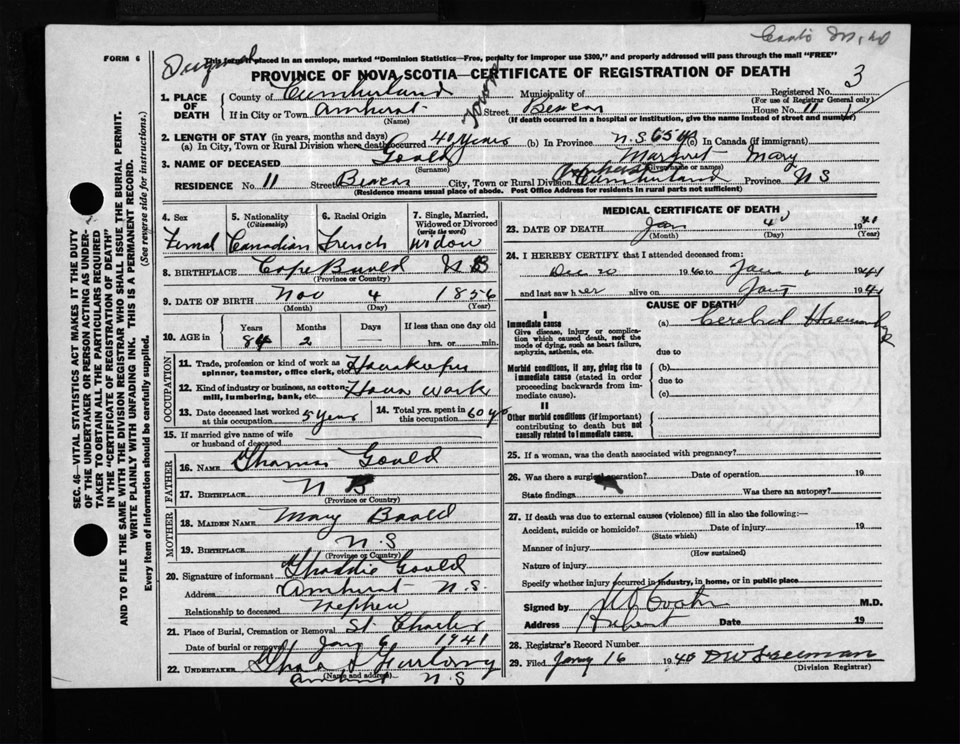 FORM 6
This form if placed in an envelope, marked "Dominion Statistics—Free, penalty for improper use $300," and properly addressed will pass through the mail "FREE"
PROVINCE OF NOVA SCOTIA—CERTIFICATE OF REGISTRATION OF DEATH
3
1. PLACE OF DEATH
County of Cumberland Municipality of Registered No.
(For use of Registrar General only)
If in City or Town Amherst Street Beacon House No. 11
(Name) (If death occurred in a hospital or institution, give the name instead of street and number)
2. LENGTH OF STAY (in years, months and days)
(a) In City, Town or Rural Division where death occurred 40 years (b) In Province N.S 65 yrs (c) In Canada (if immigrant)
3. NAME OF DECEASED Gould Margret Mary
(Surname) (Given name or names)
RESIDENCE No. 11 Street Beacon City, Town or Rural Division Amherst Cumberland Province N S
(Residence means usual place of abode. Post Office Address for residents in rural parts not sufficient)
4. Sex Femal
5. Nationality (Citizenship) Canadian
6. Racial Origin French
7. Single, Married, Widowed or Divorced (write the word) Widow
8. BIRTHPLACE Cape Bauld N B
(Province or Country)
9. DATE OF BIRTH Nov 4 1856
(Month) (Day) (Year)
10. AGE in Years Months Days If less than one day
84 2 — hrs. or min.
OCCUPATION
11. Trade, profession or kind of work as spinner, teamster, office clerk, etc. Housekeeper
12. Kind of industry or business, as cotton mill, lumbering, bank, etc. House work
13. Date deceased last worked at this occupation 5 years 14. Total yrs. spent in this occupation 60 yrs
15. If married give name of wife or husband of deceased
FATHER
16. NAME Thomas Gould
17. BIRTHPLACE N B
(Province or Country)
MOTHER
18. MAIDEN NAME Mary Bauld
19. BIRTHPLACE N.S
(Province or Country)
20. Signature of informant Thaddie Gould
Address Amherst N.S.
Relationship to deceased Nephew
21. Place of Burial, Cremation or Removal St Charles
Date of burial or removal Jany 6 1941
22. UNDERTAKER Furlong
(Name and address)
Amherst N.S
MEDICAL CERTIFICATE OF DEATH
23. DATE OF DEATH Jan 4 19
(Month) (Day) (Year)
24. I HEREBY CERTIFY that I attended deceased from:
Dec 20 1940 to Jan 1941
and last saw her alive on Jany 1941
CAUSE OF DEATH
I
Immediate cause (a) Cerebral
Give disease, injury or complication which caused death, not the mode of dying, such as heart failure, asphyxia, asthenia, etc.
due to
Morbid conditions, if any, giving rise to immediate cause (stated in order proceeding backwards from immediate cause).
(b)
due to
(c)
II
Other morbid conditions (if important) contributing to death but not causally related to immediate cause.
25. If a woman, was the death associated with pregnancy?
26. Was there a surgical operation? Date of operation 19
State findings Was there an autopsy?
27. If death was due to external causes (violence) fill in also the following:—
Accident, suicide or homicide? Date of injury 19
(State which)
Manner of injury
(How sustained)
Nature of injury
Specify whether injury occurred in industry, in home, or in public place
Signed by M.D.
Address Date 19
28. Registrar's Record Number
29. Filed Jany 16 1940
(Division Registrar)
SEC. 46—VITAL STATISTICS ACT MAKES IT THE DUTY
OF THE UNDERTAKER OR PERSON ACTING AS UNDER-
TAKER TO OBTAIN ALL THE PARTICULARS REQUIRED
IN THE "CERTIFICATE OF REGISTRATION OF DEATH"
AND TO FILE THE SAME WITH THE DIVISION REGISTRAR WHO SHALL ISSUE THE BURIAL PERMIT.
WRITE PLAINLY WITH UNFADING INK. THIS IS A PERMANENT RECORD.
Every item of information should be carefully supplied. (See reverse side for instructions.)